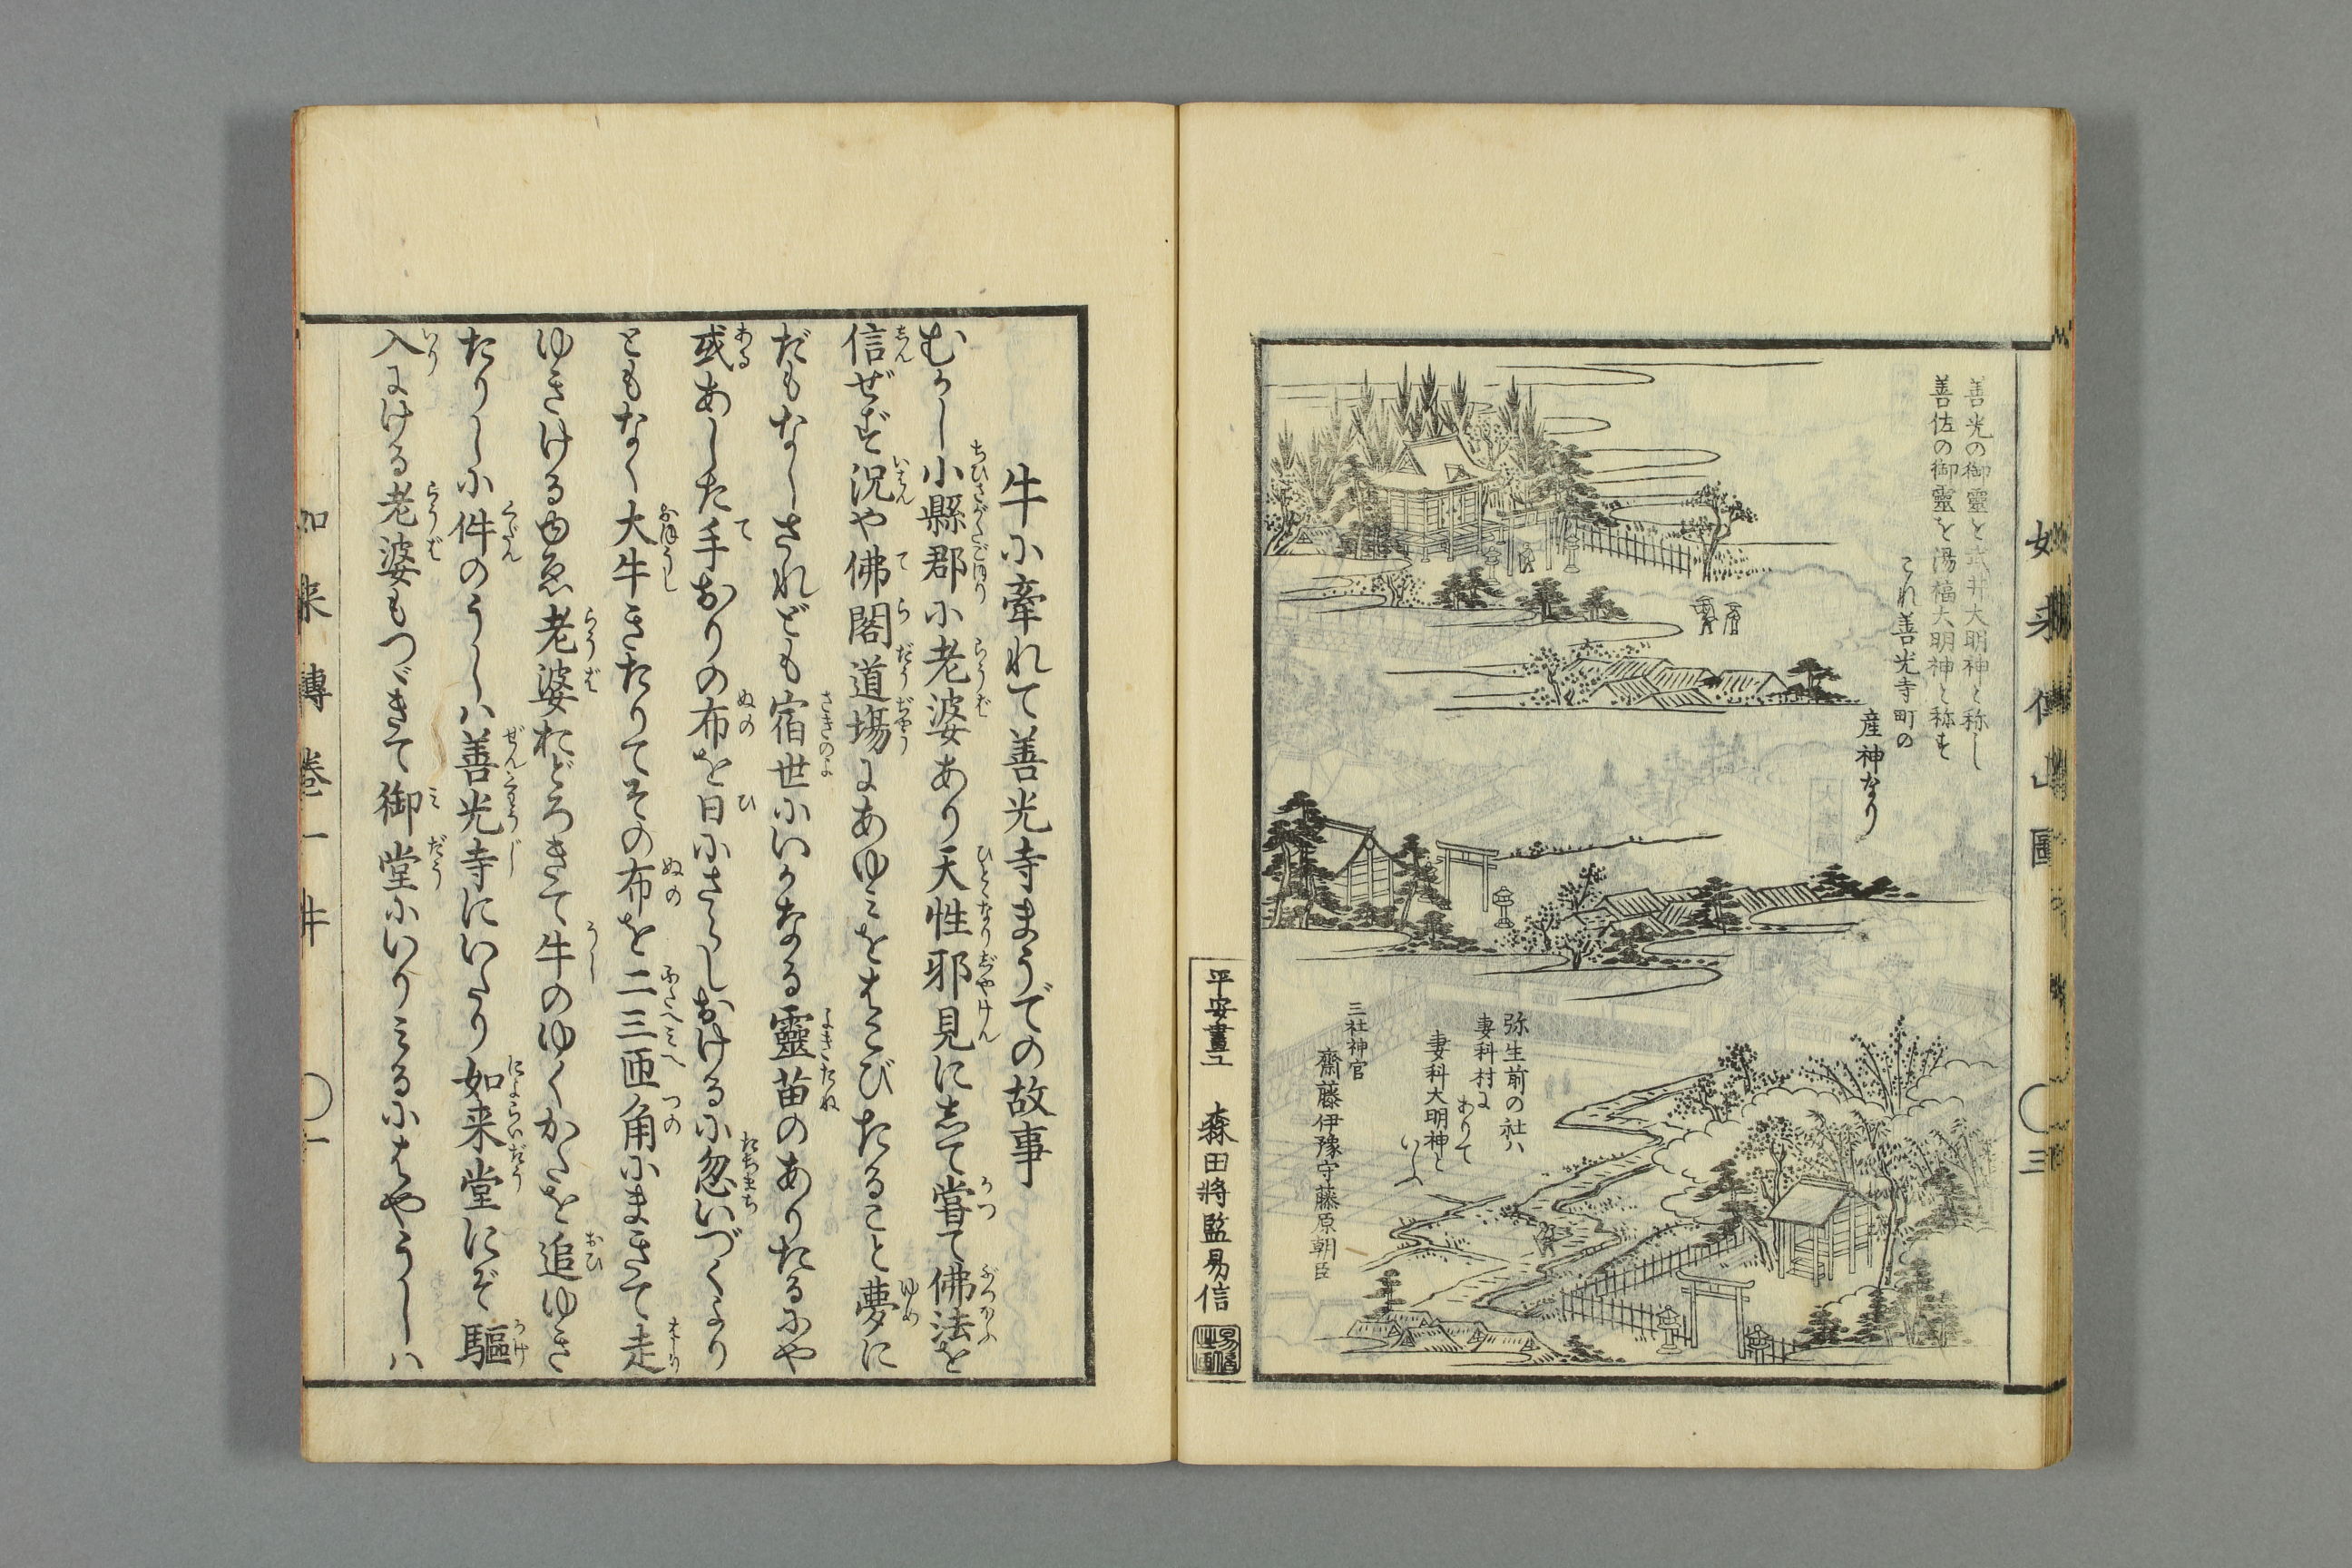 善光の御靈を武井大明神と称し
善佐の御靈を湯福大明神と称す
これ善光寺町の
産神なり
弥生前の社ハ
妻科村に
ありて
妻科大明神と
いふ
三社神官
齋藤伊豫守藤原朝臣
三
平安畫工　森田將監易信
牛に牽れて善光寺まうでの故事
むかし小縣郡に老婆あり天性邪見にして嘗て佛法を
信ぜず況や佛閣道場にあゆミをはこびたること夢に
だもなしされども宿世にいかなる靈苗のありたるにや
或あした手おりの布を日にさらしおけるに忽いづくより
ともなく大牛きたりてその布を二三匝角にまきて走
ゆきけるゆゑ老婆おどろきて牛のゆくかたを追ゆき
たりしに件のうしハ善光寺にいたり如来堂にぞ驅
入にける老婆もつゞきて御堂にいりミるにはやうしハ
如来傳巻一牛　一